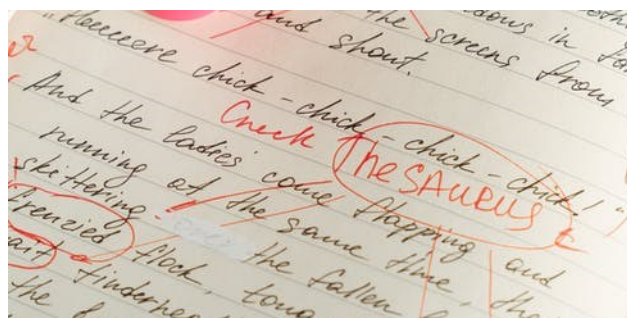 dows in
the screens from
and shout.
"Heeeere chick-chick-chick-chick!"
Check THESAURUS
And the ladies come flapping and
running at the same time, the
skittering
the fallen
frenzied flock,
the